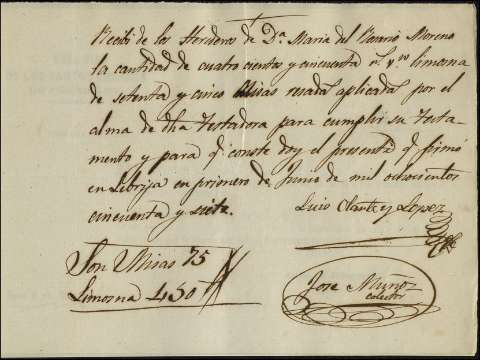 Recibi de los Herederos de D.ª Maria del Rosario Moreno
la cantidad de cuatro cientos y cincuenta r.s v.on limosna
de setenta y cinco Misas resadas aplicadas por el
alma de dha Testadora para cumplir su testa-
mento y para q.e conste doy el presente q.e firmo
en Lebrija en primero de Junio de mil ochocientos
cincuenta y siete.
Luis y Lopez
Son Misas 75
Limosna 450
Jose Muñoz
Colector